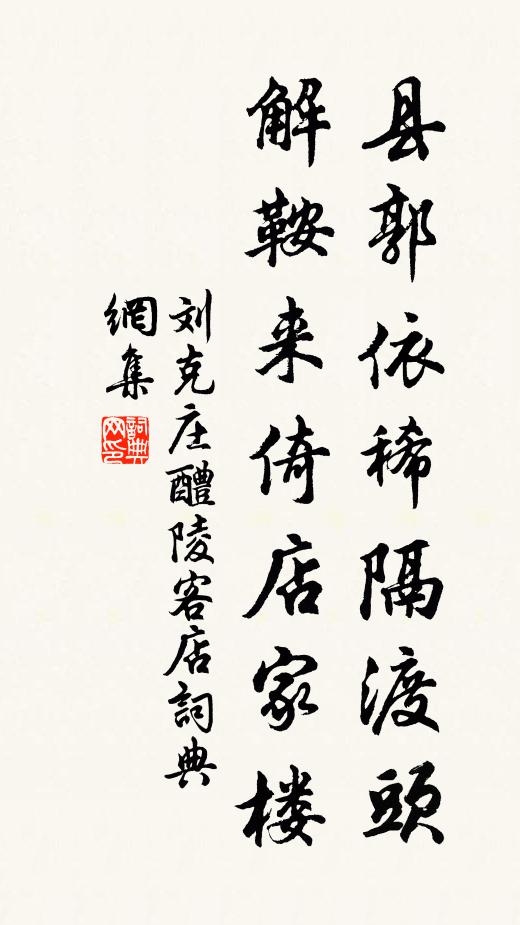 县郭依稀隔渡頭
解鞍来倚店家楼
刘克庄醴陵客店詞典
網集
詞典
网印